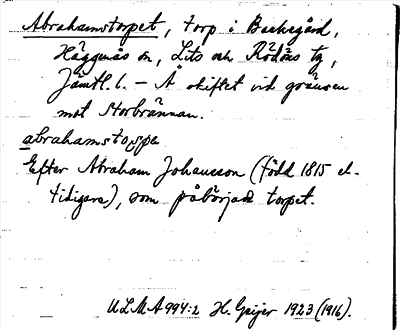 Abrahamstorpet, torp i Backegård,
Häggenås sn, Lits och Rödöns tg,
Jämtl. l. – Å skiftet vid gränsen
mot Storbrännan.
abrahamstorpe
Efter Abraham Johansson (född 1815 el.
tidigare), som påbörjade torpet.
ULMA 994:2 H. Geijer 1923 (1916).